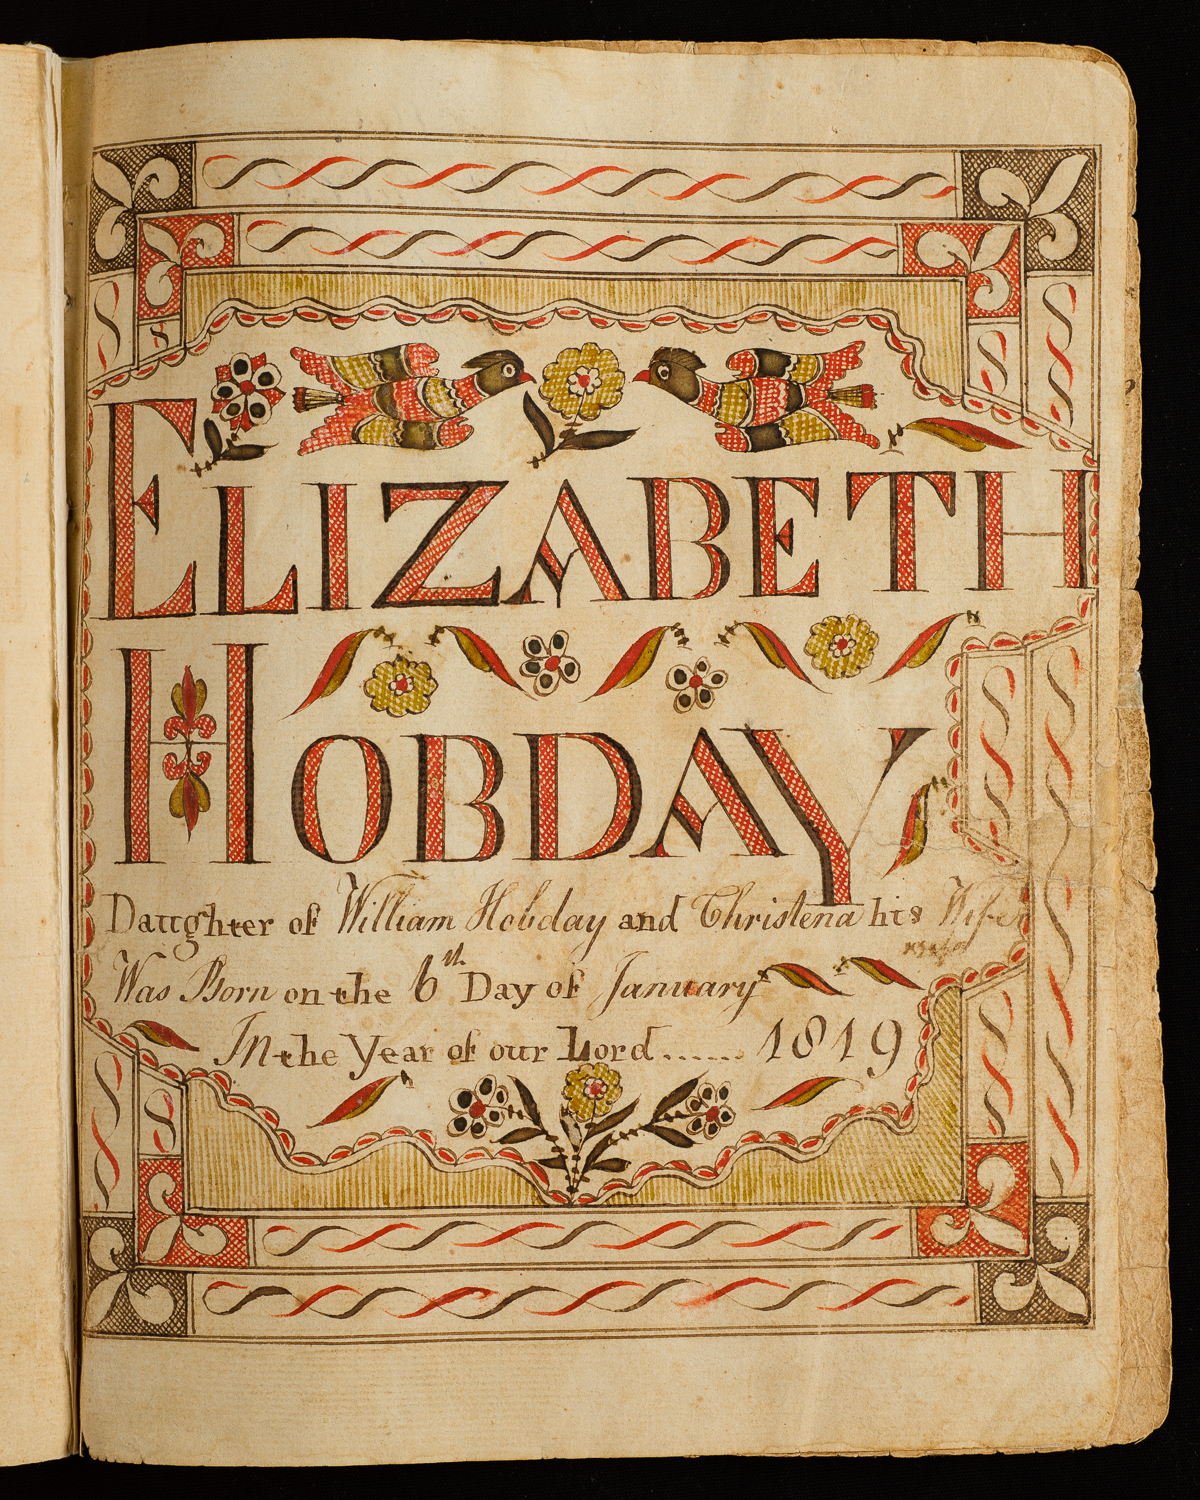 ELIZABETH
HOBDAY
Daughter of William Hobday and Christena his Wife
Was Born on the 6th Day of January
In the Year of our Lord...... 1819